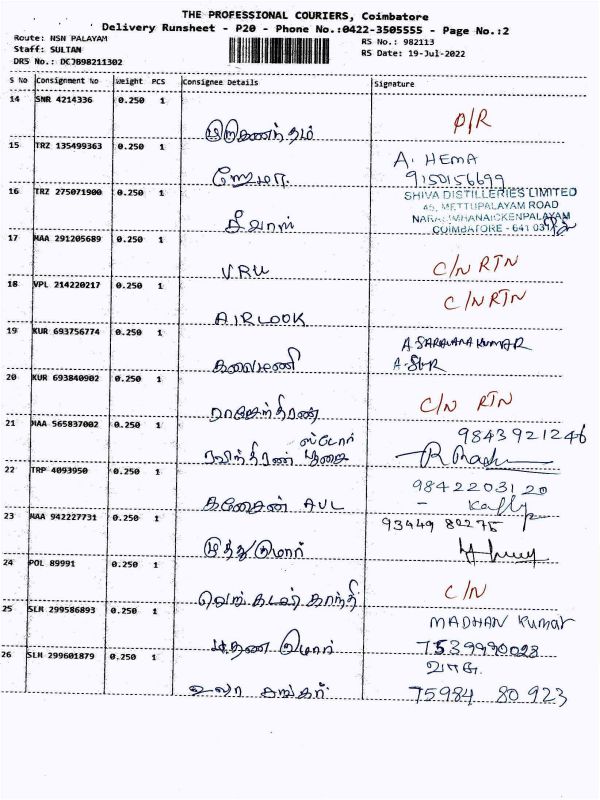 THE PROFESSIONAL COURIERS, Coimbatore
Delivery Runsheet - P20 - Phone No.:0422-3505555 - Page No.:2
Route: NSN PALAYAM
Staff: SULTAN
DRS No.: DCJB98211302
RS No.: 982113
RS Date: 19-Jul-2022
S No Consignment No Weight PCS Consignee Details Signature
14 SNR 4214336 0.250 1
P/R
15 TRZ 135499363 0.250 1
A. HEMA
ஹேமா
9150156699
16 TRZ 275071900 0.250 1
SHIVA DISTILLERIES LIMITED
45, METTUPALAYAM ROAD
NARASIMHANAICKENPALAYAM
COIMBATORE - 641 031
17 MAA 291205689 0.250 1
VRU
C/N RTN
18 VPL 214220217 0.250 1
AIRLOOK
C/N RTN
19 KUR 693756774 0.250 1
கலைமணி
A SARAVANA KUMAR
20 KUR 693840902 0.250 1
ராஜேந்திரன்
C/N RTN
21 MAA 565837002 0.250 1
ஸ்டோர்
9843921246
22 TRP 4093950 0.250 1
கணேசன் AVL
9842203120
23 MAA 942227731 0.250 1
93449 80275
முத்துகுமார்
24 POL 89991 0.250 1
C/N
25 SLM 299586893 0.250 1
MADHAN Kumar
மதன குமார்
7539990028
26 SLM 299601879 0.250 1
உமா சங்கர்
75984 80923